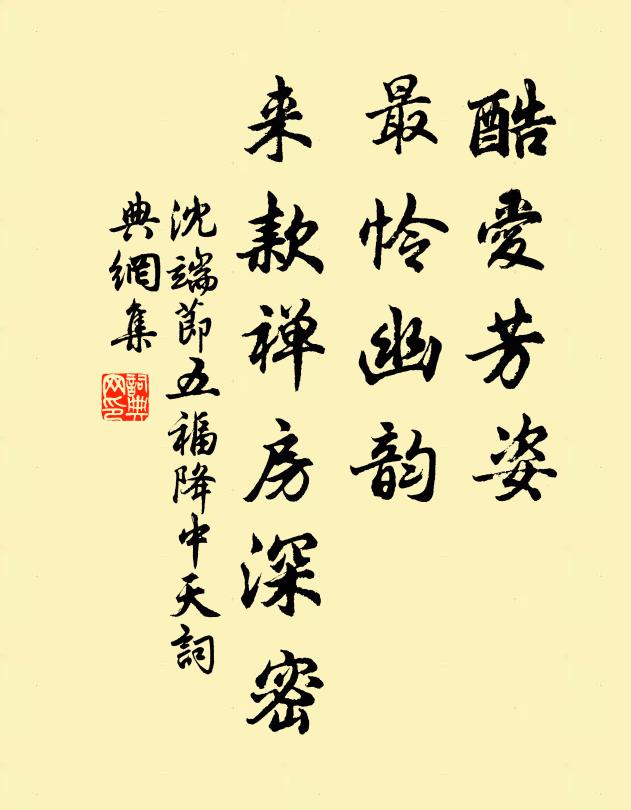 酷愛芳姿
最怜幽韵
来款禅房深密
沈端節五福降中天詞
典網集
詞典网印